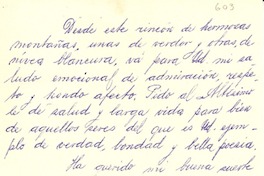 603
Desde este rincón de hermosas
montañas, unas de verdor y otras, de
nívea blancura, va para Ud. mi sa-
ludo emocional de admiración, respe-
to y hondo afecto. Pido al Altísimo
le dé salud y larga vida para bien
de aquellos seres del que es Ud. ejem-
plo de verdad, bondad y bella poesía.
Ha querido mi buena suerte